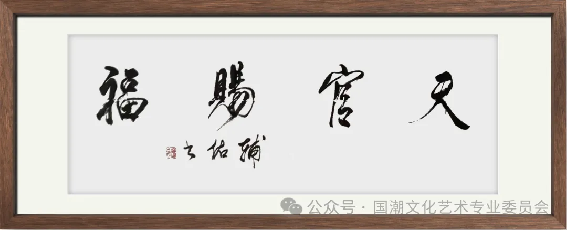 天官賜福
輔佑书
公众号·国潮文化艺术专业委员会